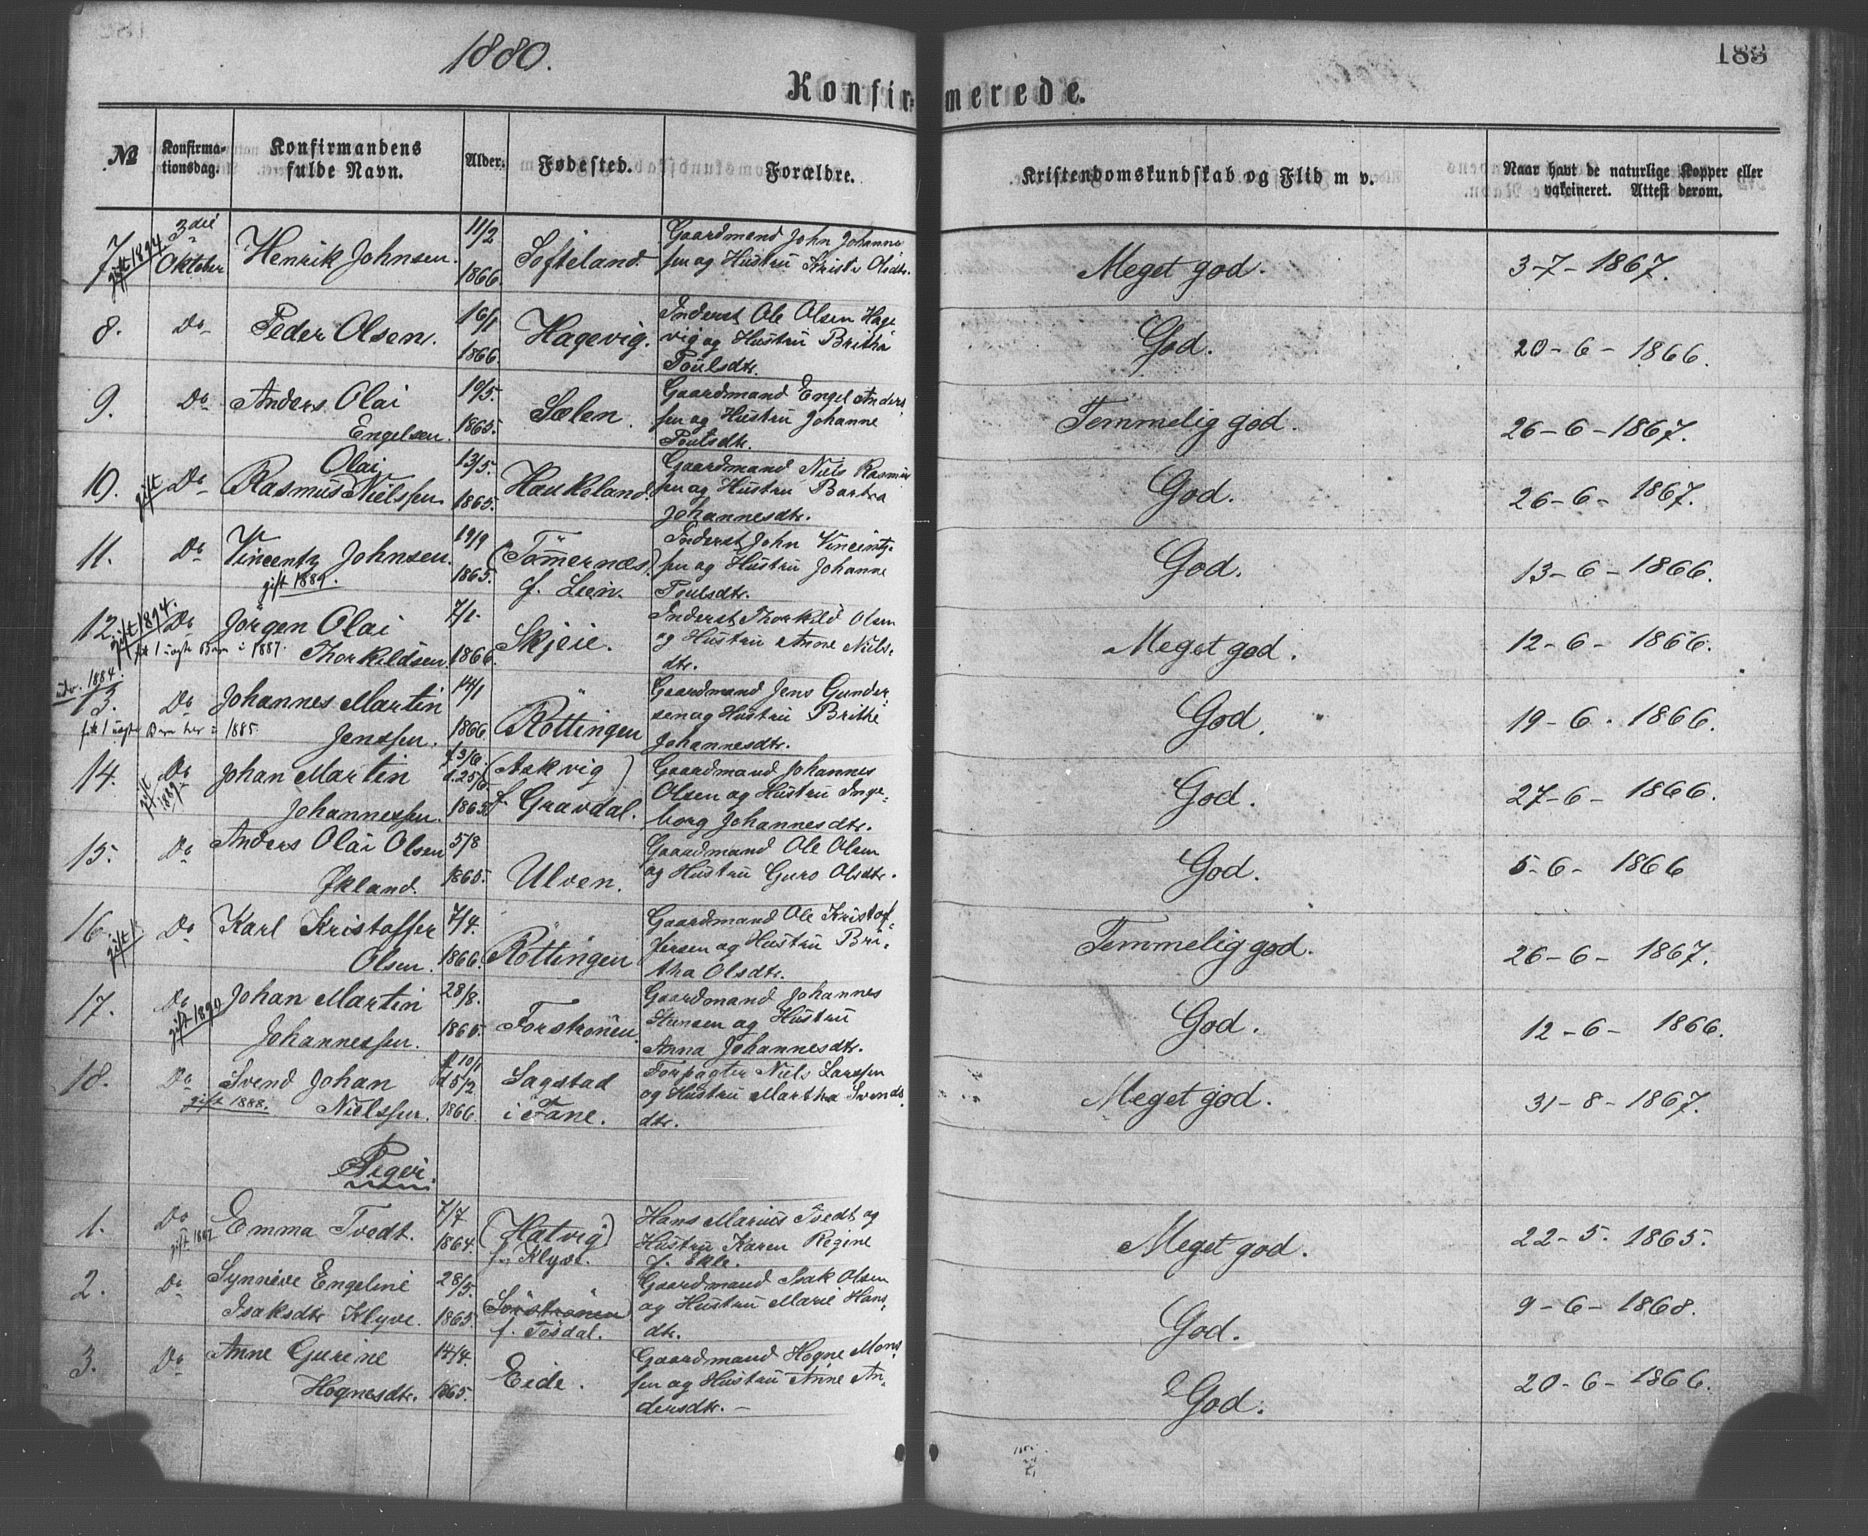 1880.
183
Konfirmerede.
№ Konfirmationsdag. Konfirmandens fulde Navn. Alder. Fødested. Forældre. Kristendomskundskab og Flid m v. Naar havt de naturlige Kopper eller vakcineret. Attest derom.
7 gift 1894 3die Oktober Henrik Johnsen. 11/2 1866. Søfteland. Gaardmand John Johannesen og Hustru Olsdtr. Meget god. 3-7-1867.
8. Do Peder Olsen. 16/1 1866 Hagevig. Inderst Ole Olsen Hagevig og Hustru Britha Poulsdtr. God. 20-6-1866.
9. Do Anders Olai Engelsen. 10/5. 1865. Sælen. Gaardmand Engel Andersen og Hustru Johanne Poulsdtr. Temmelig god. 26-6-1867.
10. gift Do Rasmus Olai Nielssen 13/5. 1865. Haukeland. Gaardmand Niels Rasmussen og Hustru Barbra Johannesdtr. God. 26-6-1867.
11. Do Vincentz Johnsen. gift 1889. 19/9 1865. (Tømmernæs) f. Lien. Inderst John Vincentzsen og Hustru Johanne Poulsdtr. God. 13-6-1866.
12. gift 1894. Do Jørgen Olai Thorkildsen fik 1 uægte Barn i 1887. 7/1. 1866. Skjeie. Inderst Thorkild Olsen og Hustru Anne Nielsdtr. Meget god. 12-6-1866.
13. udv. 1884. Do Johannes Martin Jenssen. fik 1 uægte Barn her i 1885. 14/1 1866. Røttingen Gaardmand Jens Gundersen og Hustru Brithe Johannesdtr. God. 19-6-1866.
14. gift Do Johan Martin Johannessen. f. 3/6. d. 25/6 1865. (Aakvig) f. Gravdal. Gaardmand Johannes Olsen og Hustru Ingeborg Johannesdtr. God. 27-6-1866.
15. Do Anders Olai Olsen Økland. 5/8 1865. Ulven. Gaardmand Ole Olsen og Hustru Guro Olsdtr. God. 5-6-1866
16. gift Do Karl Kristoffer Olsen. 7/4. 1866. Røttingen Gaardmand Ole Kristoffersen og Hustru Britha Olsdtr. Temmelig god. 26-6-1867.
17. Do gift 1890 Johan Martin Johannessen. 28/8. 1865. Forstrønen. Gaardmand Johannes Hansen og Hustru Anna Johannesdtr. God. 12-6-1866.
18. Do gift 1888. Svend Johan Nielssen. f 10/1 d 5/2 1866. Sagstad i Fane. Forpagter Niels Larssen og Hustru Martha Svendsdtr. Meget god. 31-8-1867.
Piger.
1. Do gift Emma Tvedt. 7/7 1864. (Hatvig) f. Klyve. Hans Marius Tvedt og Hustru Karen Regine f. Meget god. 22-5-1865.
2. Do Synneve Engeline Isaksdtr Klyve. 28/5. 1865. (Forstrønen) f. Tøsdal. Gaardmand Isak Olsen og Hustru Marie Hansdtr. God. 9-6-1868.
3. Do Anne Gurine Hognesdtr. 14/4. 1865. Eide. Gaardmand Hogne Monssen og Hustru Anne Andersdtr. God. 20-6-1866.